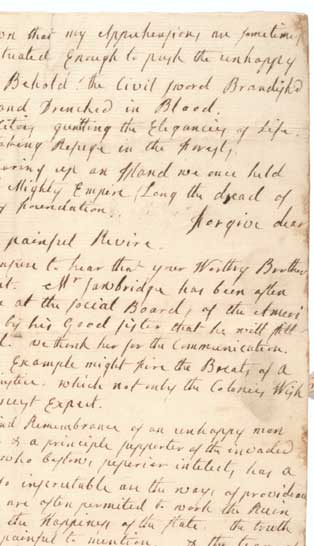 on that my Apprehensions are sometimes
tuated Enough to push the unhappy
Behold the Civil sword Brandish'd
and Drenched in Blood,
quitting the Elegancies of Life.
aking Refuge in the Forest,
up an Island we once held
Mighty Empire, Long the dread of
foundation.
Forgive dear
painful Revire.
to hear that your Worthy Brother
Mr Sawbridge has been often
at the social Board, of the Ameri
by his Good sister that he will fill
we thank her for the Communication.
Example might fire the Breasts of a
which not only the Colonies Wish
Expect.
Remembrance of an unhappy man
& a principle supporter of the invaded
who Eastons, superior intelects, has a
so inscrutable are the ways of providence
are often permited to work the Ruin
the Happeness of the State. the truth
painful to mention